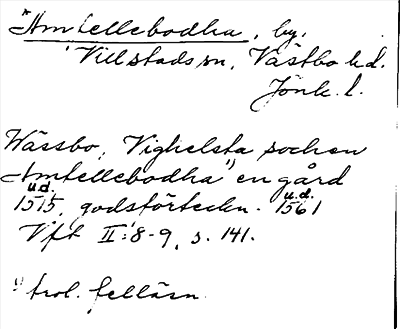 *Amtellebodha, by.
Villstads sn, Västbo hd.
Jönk. l.
Wässbo, Vighelsta sochen
Amtellebodha¹⁾ en gård
u.d. u.d.
1515, godsförteckn. 1561
Vft II: 8-9, s. 141.
¹⁾ trol. felläsn.